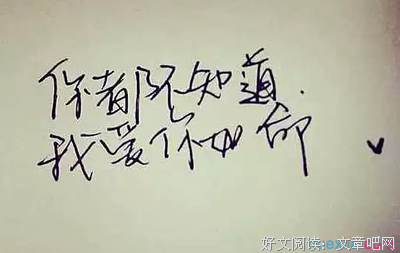 你都不知道.
我爱你如命
好文阅读:文章吧网